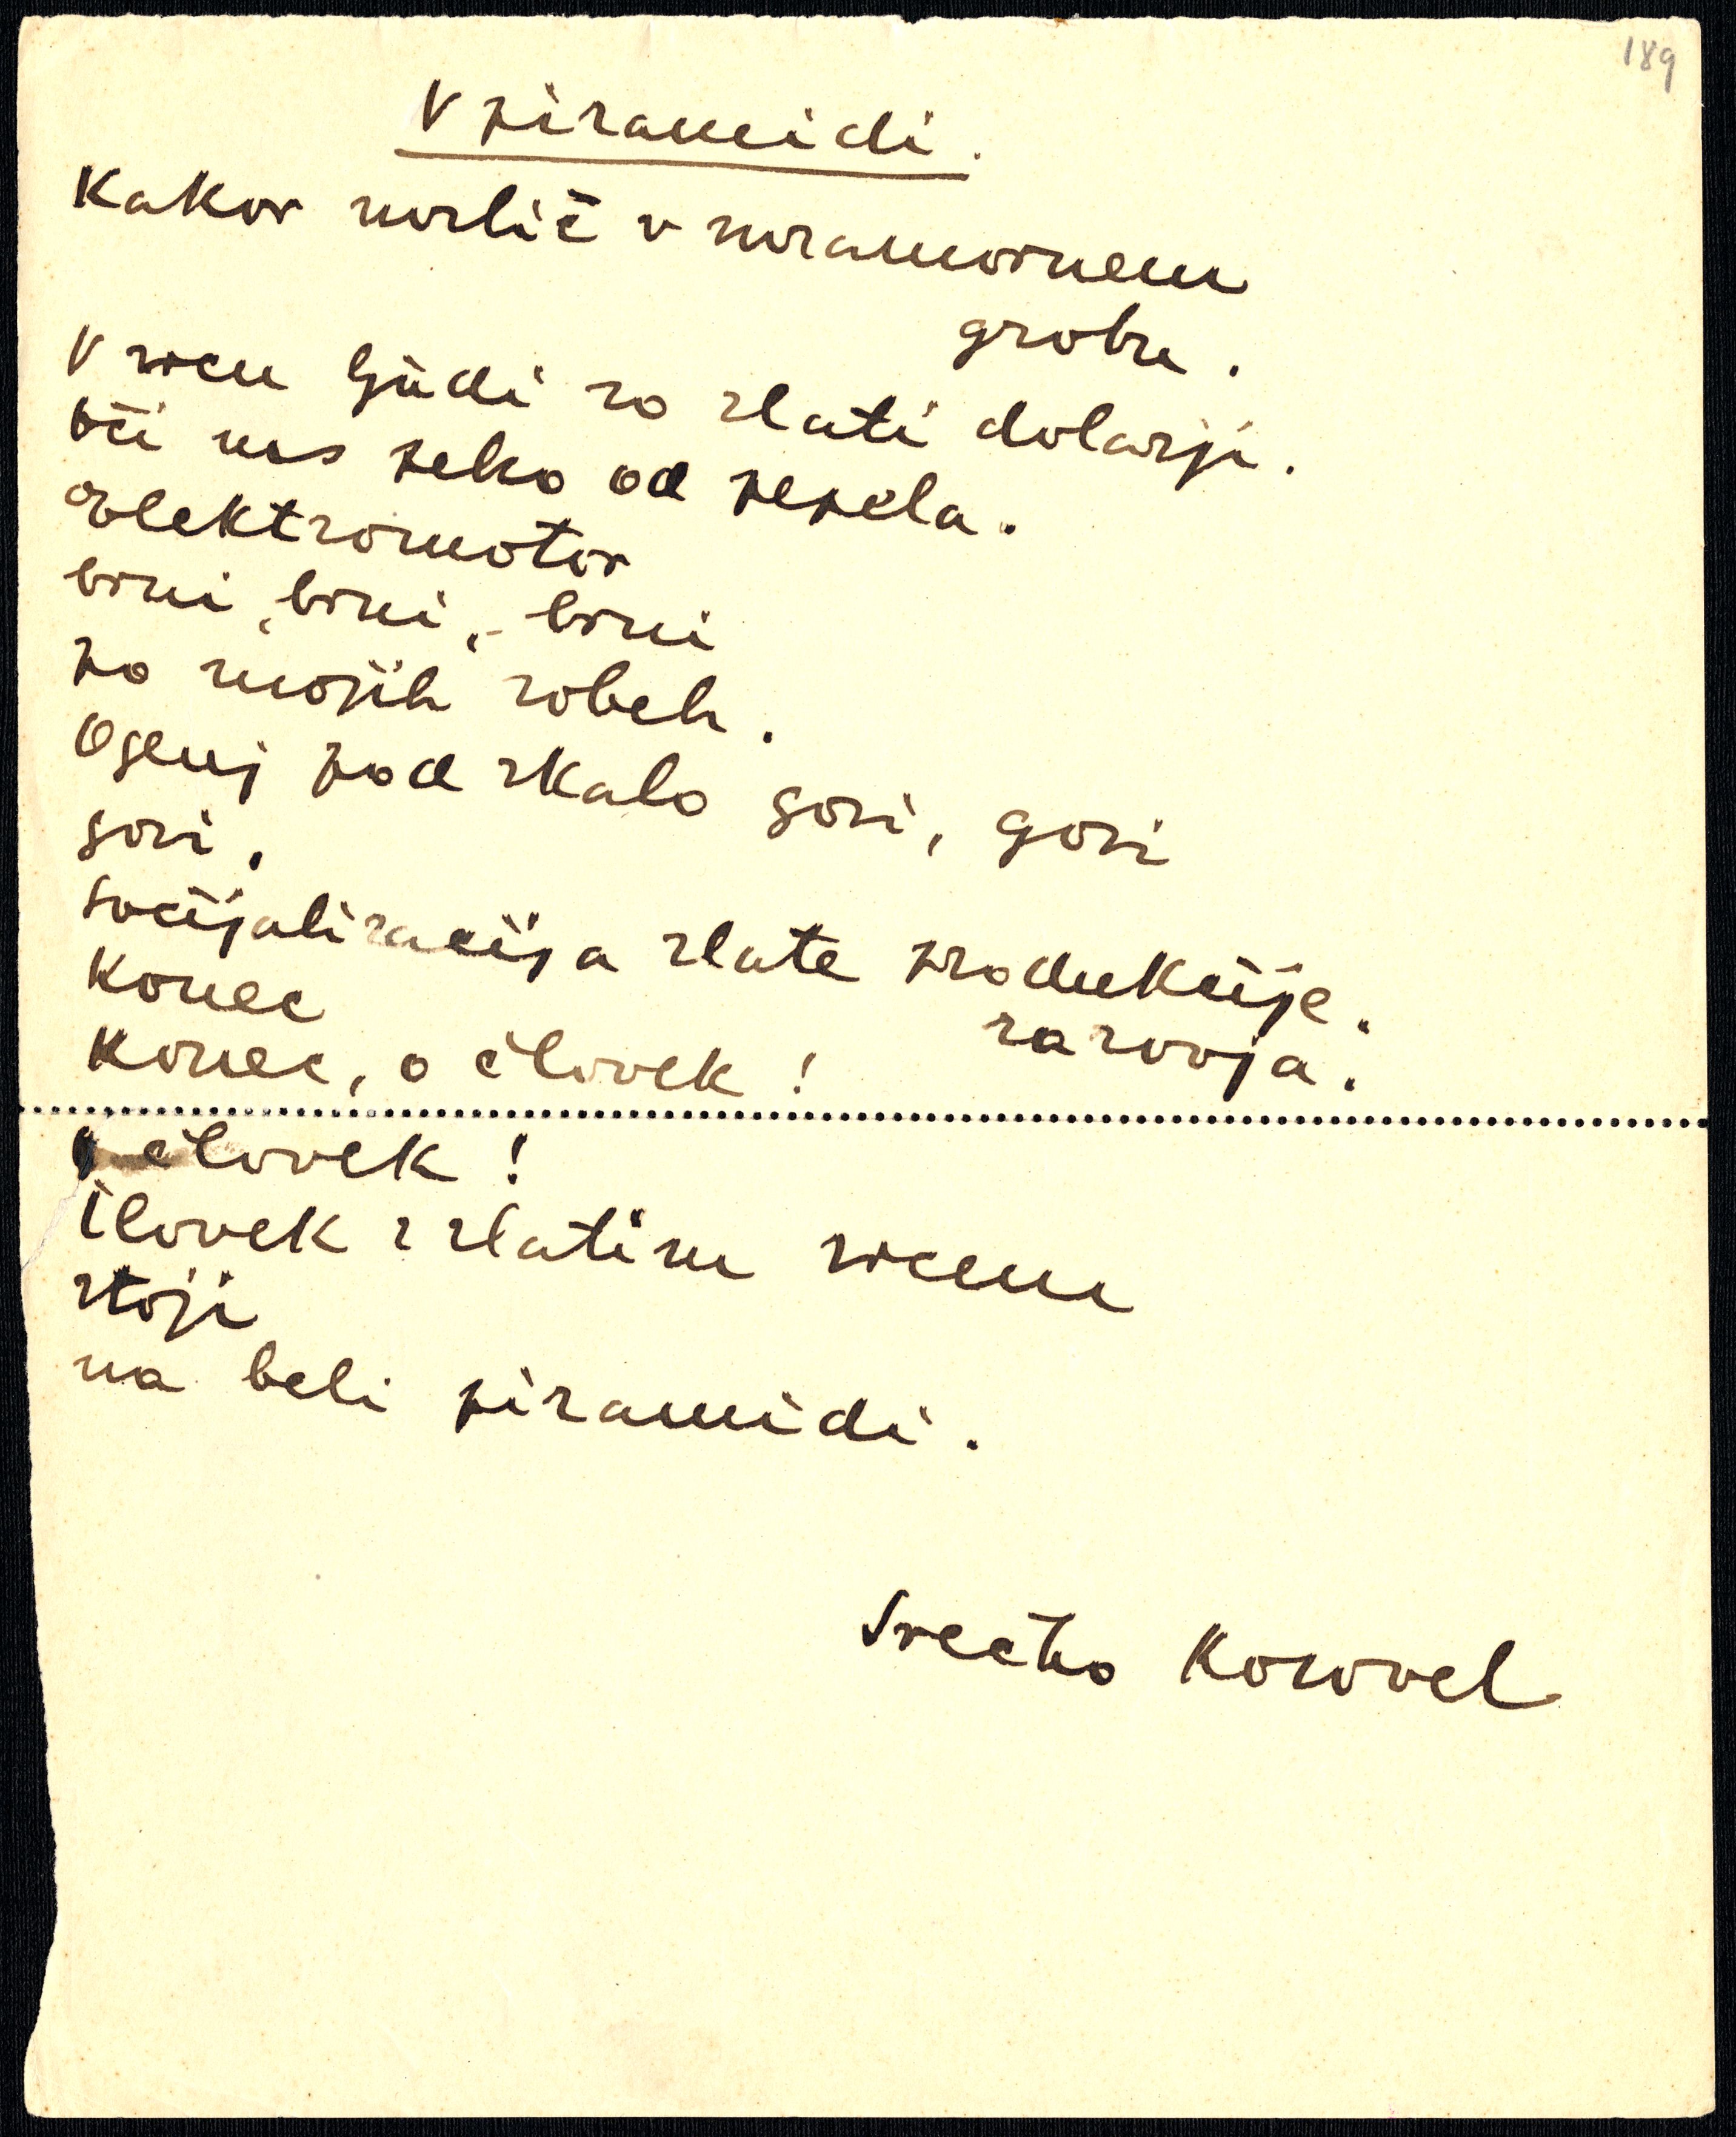 189
V piramidi.
Kakor mrlič v mramornem
grobu.
V srcu ljudi so zlati dolarji.
Oči nas peko od pepela.
Elektromotor
brni, brni, brni
po mojih zobeh.
Ogenj pod skalo gori, gori
gori.
Socijalizacija zlate produkcije.
Konec razvoja.
Konec, o človek!
o človek!
Človek z zlatim srcem
stoji
na beli piramidi.
Srečko Kosovel